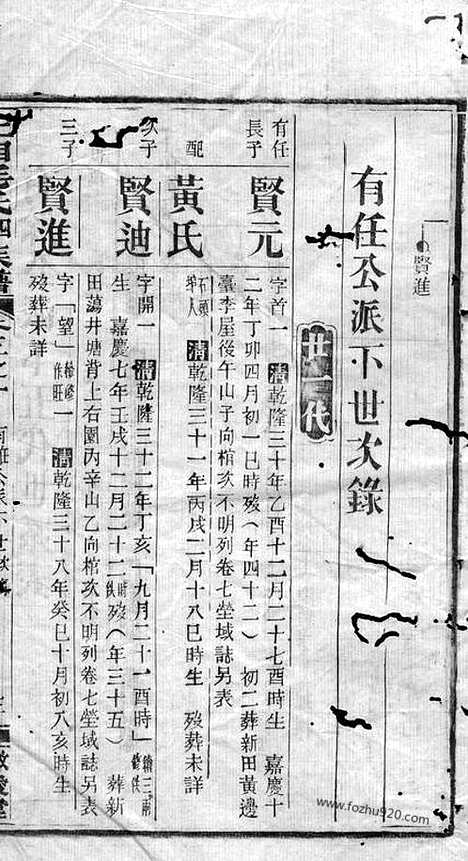 賢進
有任公派下世次錄
廿一代
有任
長子
賢元
字首一 清乾隆三十年乙酉十二月二十七酉時生 嘉慶十
二年丁卯四月初一巳時歿（年四十二） 初二葬新田黃邊
臺李屋後午山子向棺次不明列卷七塋域誌另表
配
黃氏
石頭
人
清乾隆三十一年丙戌二月十八巳時生 歿葬未詳
次子
賢迪
字開一 清乾隆三十二年丁亥「九月二十一酉時」
生 嘉慶七年壬戌十二月二十二 時歿（年三十五） 葬新
田蕩井塘背上右園丙辛山乙向棺次不明列卷七塋域誌另表
三子
賢進
字「望」 一 清乾隆三十八年癸巳十月初八亥時生
歿葬未詳
www.fozhu920.com